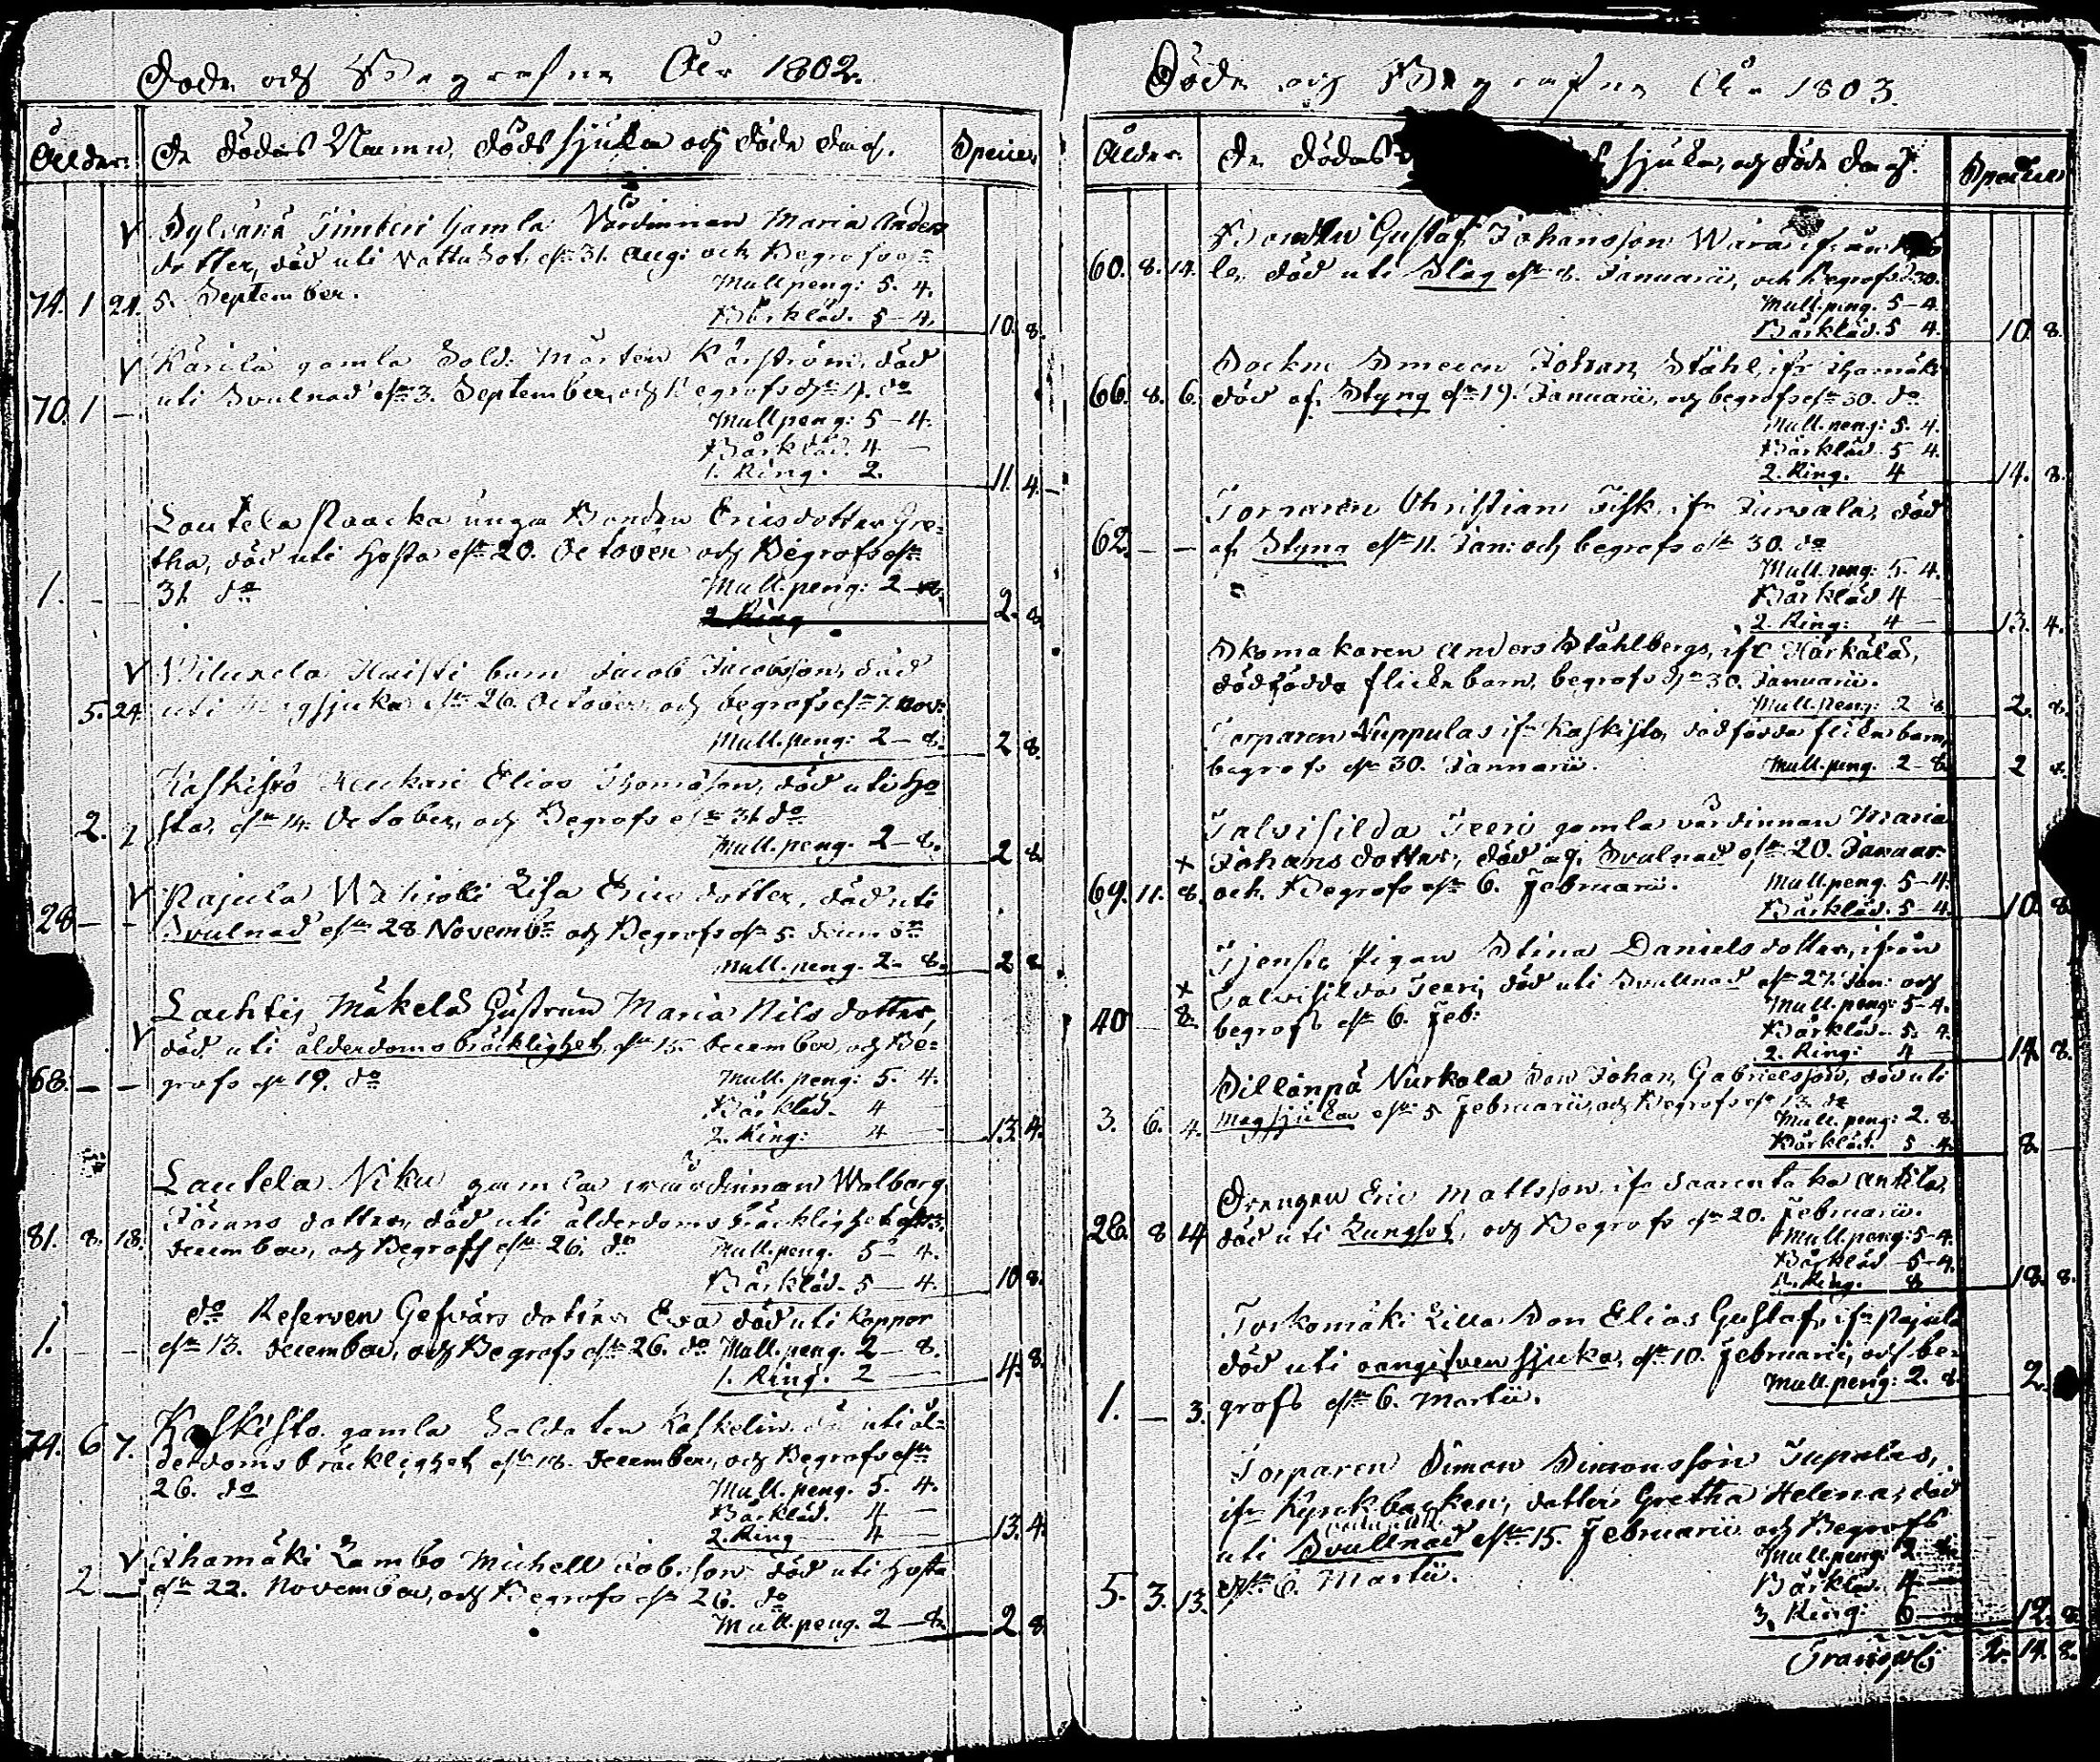 Döde och Begrafne År 1802.
Ålder. De dödas Namn, dödssjuka och döde dag. Specier
Sylvänä Timberi gamla Värdinnan Maria Anders
dotter, död uti Vattusot, dn 31. Aug: och Begrofs dn
74. 1 24. 5. September. Mullpeng: 5. 4.
Bårkläd. 5-4. 10. 8.
Kärilä gamla Sold. Mårten Kärström, död
70. 1 – uti Svulnad dn 3. September, och Begrofs dn 4. do
Mullpeng: 5-4.
Bårkläd. 4. –
1. Ring. 2. 11. 4.
Lautela Paacka unga Bonden Ericsdotter Gre=
tha, död uti Hosta dn 20. October och Begrofs dn
1. – – 31. do Mull.peng: 2-8.
2 Ring 2. 8.
Jacob Jacobsson, död
5. 24. uti Magsjuka dn 26. October, och begrofs dn 7. nov:
Mull.peng: 2-8. 2 8.
Kaskisto Elias Thomasson, död uti Ho
2. sta, dn 14. October, och Begrofs dn 31. do
Mull.peng. 2-8. 2 8.
Pajula Lisa Ericsdotter, död uti
28. – – Svulnad dn 28. Novembr och Begrofs dn 5. decembr
Mull.peng. 2-8. 2 8.
Lachtis Mäkelä Hustrun Maria Nilsdotter,
död uti ålderdoms bräcklighet, dn 15. december, och Be=
68. – – grofs dn 19. do Mull.peng: 5. 4.
Bårkläd. 4 –
2. Ring: 4 – 13. 4.
Lautela Niku gamla wärdinnan Walborg
81. 8. 18. Görans dotter, död uti ålderdoms bräcklighet dn 13.
december, och Begrofs dn 26. do Mull.peng. 5 – 4.
Bårkläd. 5 – 4. 10 8.
do Reserven Gefvärs dotter Eva död uti Koppor
1. – – dn 13. december, och Begrofs dn 26. do Mull.peng. 2 – 8.
1. Ring. 2 – 4. 8.
Kaskisto gamla Soldaten Kaskelin död uti ål=
74. 6 7. derdoms bräcklighet, dn 18. december, och Begrofs dn
26. do Mull.peng. 5. 4.
Bårkläd. 4 –
2. Ring 4 – 13. 4.
Ihamäki Lambo Michell Jobsson död uti Hosta
2 – dn 22. November, och Begrofs dn 26. do
Mull.peng. 2-8. 2 8.
Döde och Begrafne År 1803.
Ålder. De dödas sjuka, och döde dag. Specier
Bonden Gustaf Johansson Wara ifrån
60. 8. 14. le, död uti Slag dn 8. Januarii, och Begrofs d. 30.
Mull.peng. 5-4.
Bårkläd. 5 4. 10. 8.
Sockne Smeden Johan Ståhl, ifr Ihamäki
66. 8. 6. död af Styng dn 19. Januarii, och begrofs dn 30. do
Mull.peng: 5. 4.
Bårkläd. 5 4.
2. Ring. 4 14. 8.
Torparen Christian Fisk, ifr Jursala, död
62. – – af Styng dn 11. Jan: och begrofs dn 30. do
Mull.peng: 5. 4.
Bårkläd 4 –
2. Ring: 4 – 13. 4.
Skomakaren Anders Ståhlbergs, ifr Härkälä,
dödfödda flickebarn, begrofs dn 30. Januarii.
Mull.peng: 2 8 2. 8.
Torparen Nuppulas ifr Kaskisto, dödfödda flickebarn,
begrofs dn 30. Januarii. Mull.peng. 2 8. 2 8.
Talvisilda Teeri gamla värdinnan Maria
Johans dotter, död af Svulnad dn 20. Januar.
69. 11. 8. och Begrofs dn 6. Februarii. Mull.peng. 5-4.
Bårkläd. 5-4. 10. 8.
Tjenste Pigan Stina Danielsdotter, ifrån
Talvisilda Teeri, död uti Svullnad dn 27. Jan: och
40 – 8. begrofs dn 6. Feb: Mull.peng: 5-4.
Bårkläd. 5. 4.
2. Ring: 4 14. 8.
Sillanpä Nurkala Son Johan Gabrielsson, död uti
3. 6. 4. Magsjuka dn 5. Februarii, och Begrofs dn 13. do
Mull.peng: 2. 8.
Bårkläd. 5 4. 8. –
Drengen Eric Mattsson, ifr Saarentaka Antila,
26. 8 14 död uti Lungsot, och Begrofs dn 20. Februarii.
Mull.peng: 5-4.
Bårkläd 5-4.
Ring. 8 18. 8.
Torkomäki Lilla Son Elias Gustaf, ifr Pajula
död uti oangifven sjuka, dn 10. Februarii, och be
1. – 3. grofs dn 6. Martii. Mull.peng: 2. 8. 2.
Torparen Simon Simonsson Tupalas,
ifr Kyrckbacken, dotter Gretha Helena, död
uti Svullnad dn 15. Februarii och Begrofs
5. 3. 13. dn 6. Martii. Mull.peng: 2 8.
Bårkläd. 4 –
3. Ring: 6 – 12. 8.
Transport 2. 14. 8.